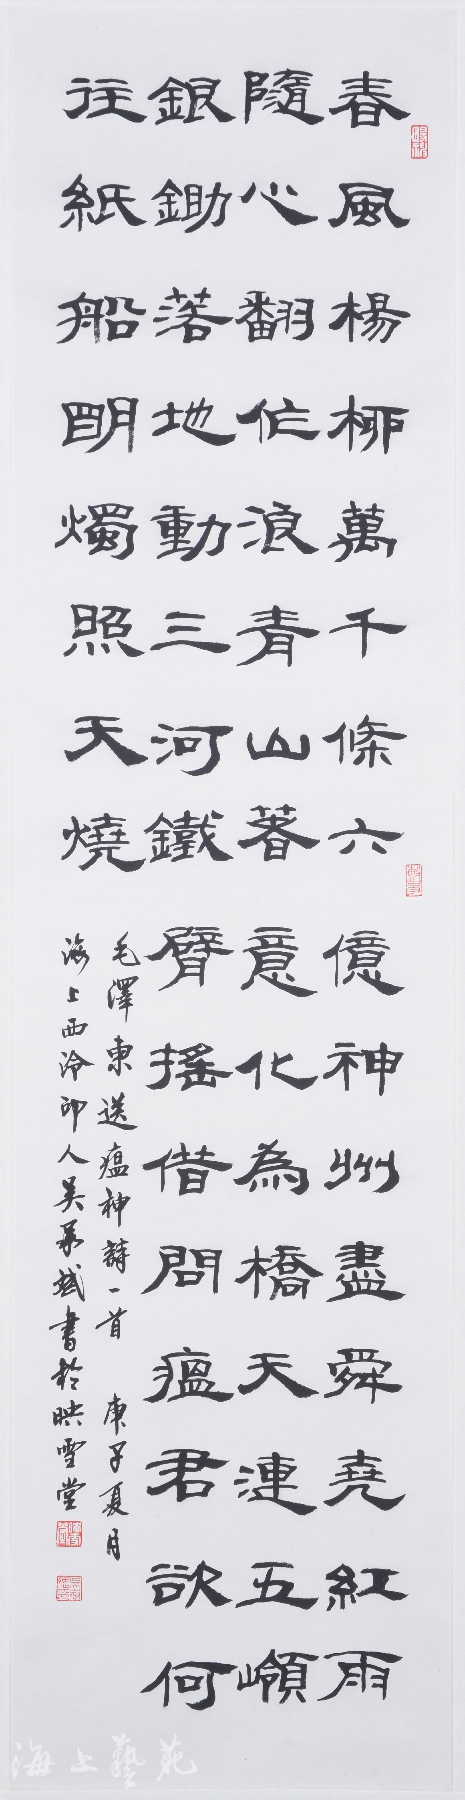 春風楊柳萬千條六億神州盡舜堯紅雨
隨心翻作浪青山著意化為橋天連五嶺
銀鋤落地動三河鐵臂搖借問瘟君欲何
往紙船明燭照天燒
毛澤東送瘟神詩一首 庚子夏月
海上西泠印人吳承斌書於映雪堂
海上藝苑